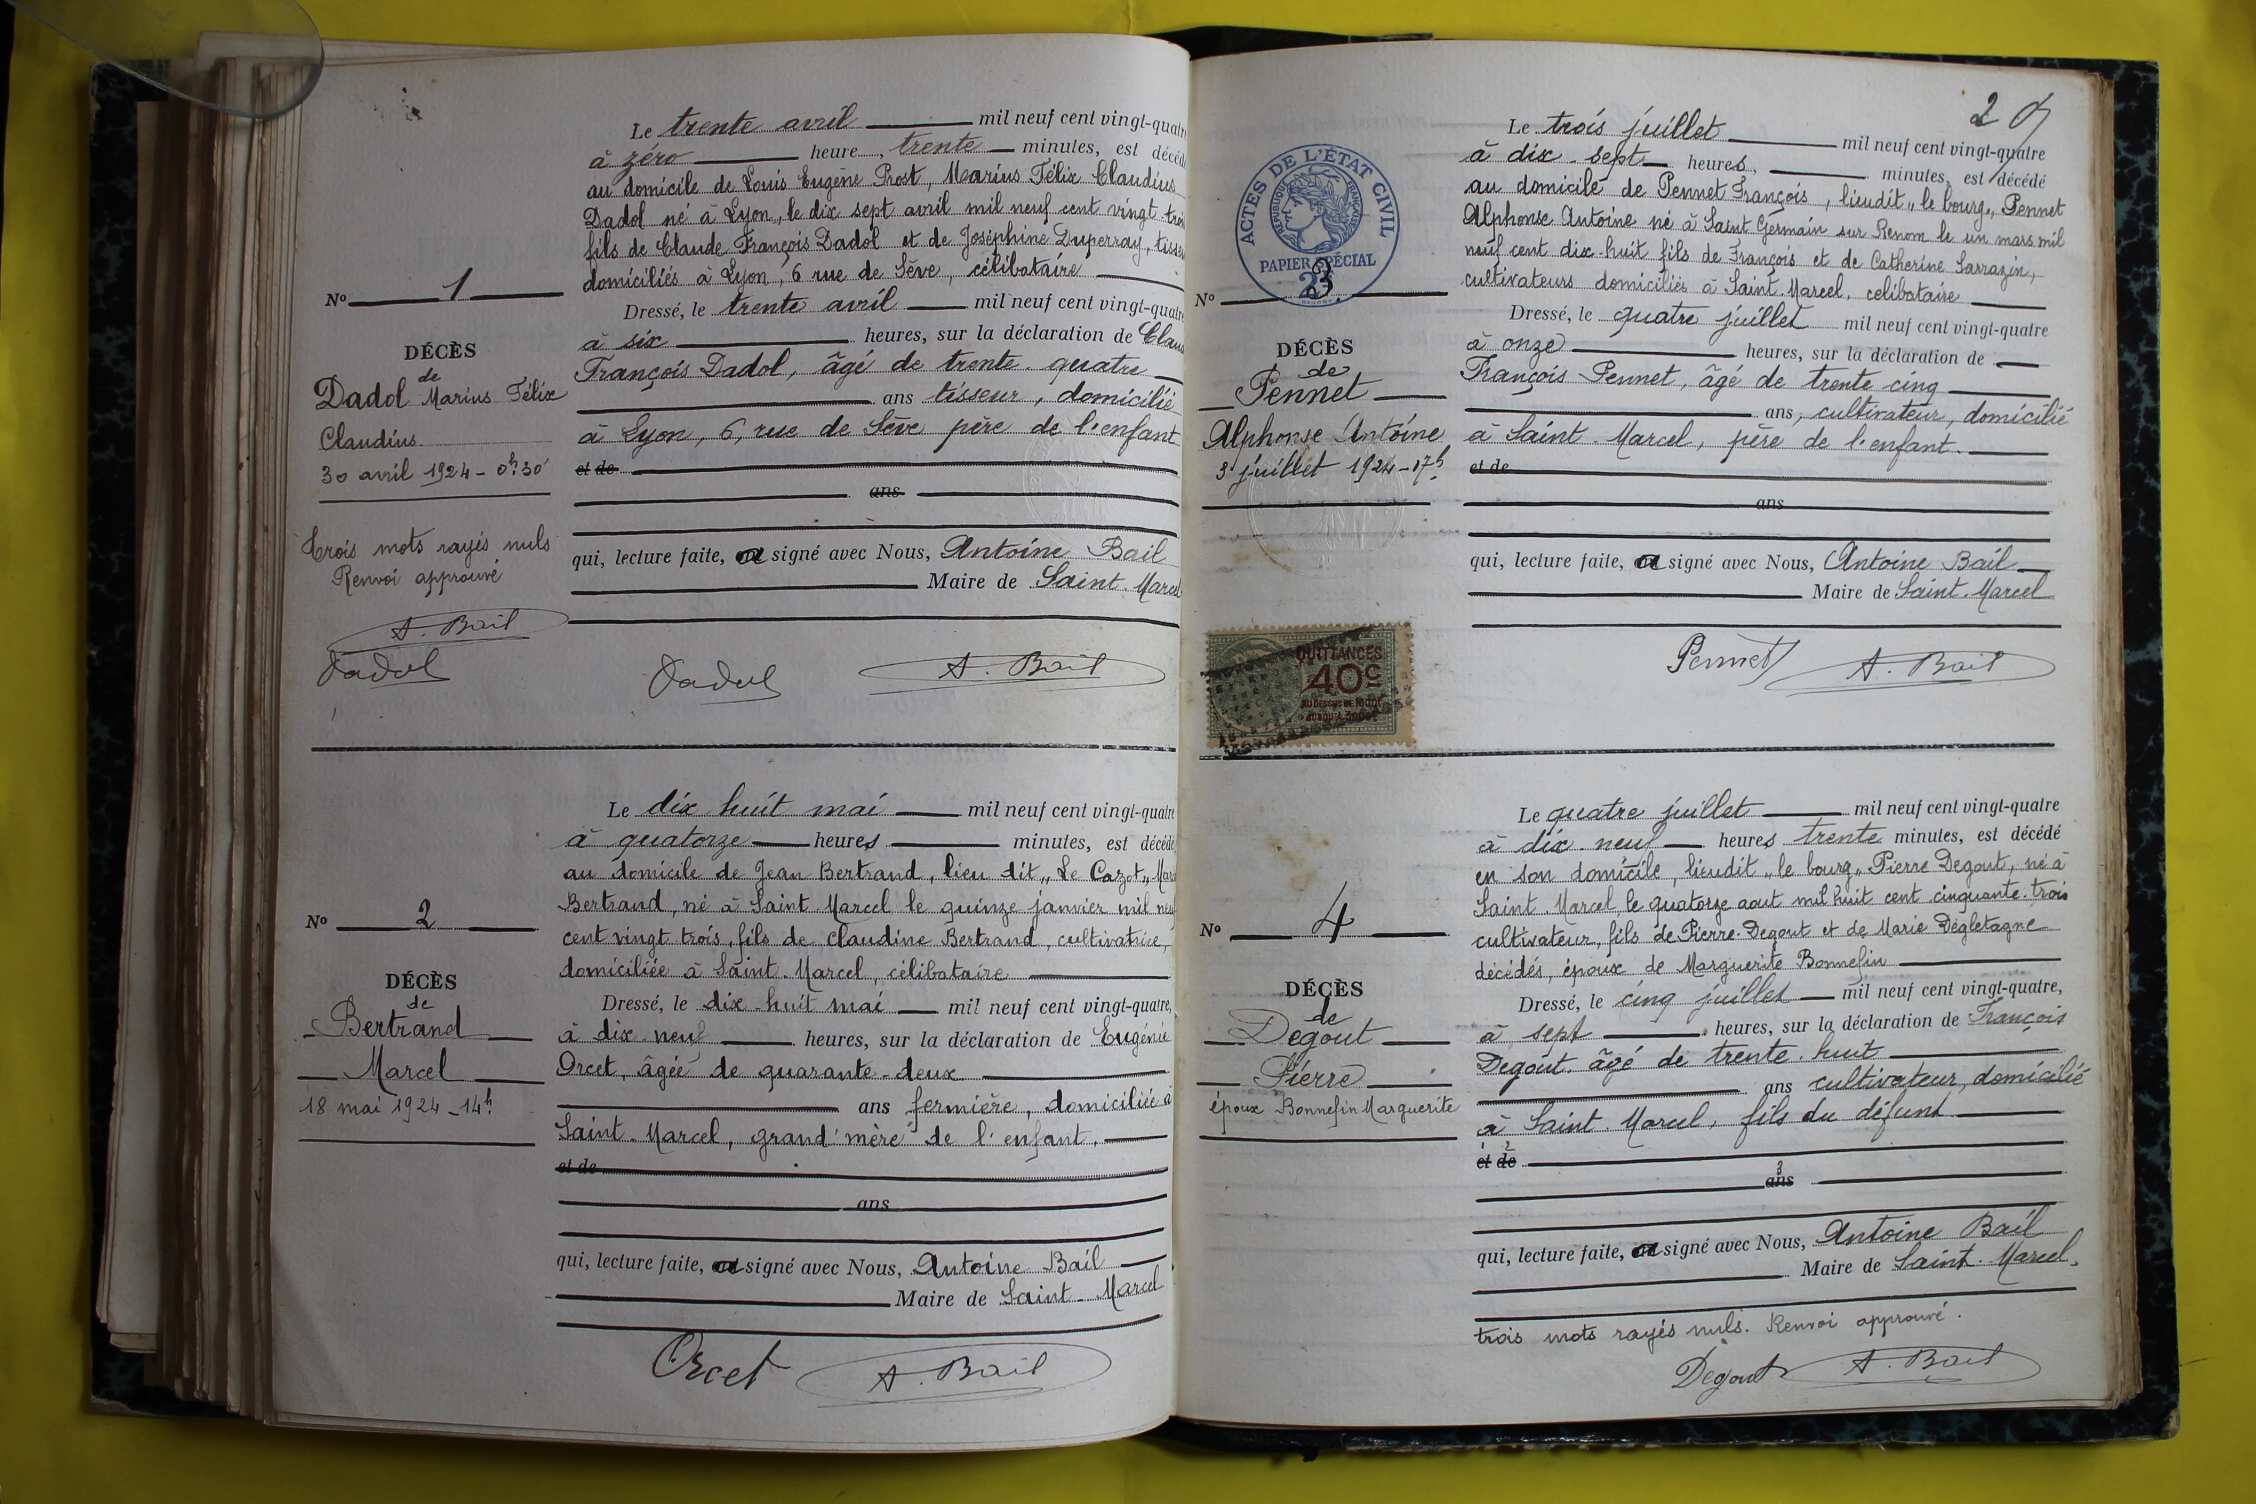 Le trente avril mil neuf cent vingt-quatre
à zéro heure, trente minutes, est décédé
au domicile de Louis Eugène Prost, Marius Félix Claudius
Dadol né à Lyon, le dix sept avril mil neuf cent vingt trois
fils de Claude François Dadol et de Joséphine Duperray, tisseurs
domiciliés à Lyon, 6 rue de Sève, célibataire
Nº 1
Dressé, le trente avril mil neuf cent vingt-quatre
à six heures, sur la déclaration de Claude
DÉCÈS
de
Dadol Marius Félix
Claudius
30 avril 1924 - 0h30'
François Dadol, âgé de trente-quatre
ans tisseur, domicilié
à Lyon, 6, rue de Sève père de l'enfant
et de
ans
Trois mots rayés nuls
Renvoi approuvé
A. Bail
Dadol
qui, lecture faite, a signé avec Nous, Antoine Bail
Maire de Saint-Marcel
Dadol A. Bail
Le dix huit mai mil neuf cent vingt-quatre
à quatorze heures minutes, est décédé
au domicile de Jean Bertrand, lieu dit „Le Cazot„ Marcel
Bertrand, né à Saint Marcel le quinze janvier mil neuf
cent vingt trois, fils de Claudine Bertrand, cultivatrice,
domiciliée à Saint-Marcel, célibataire
Nº 2
DÉCÈS
de
Bertrand
Marcel
18 mai 1924 - 14h
Dressé, le dix-huit mai mil neuf cent vingt-quatre,
à dix neuf heures, sur la déclaration de Eugénie
Orcet, âgée de quarante-deux
ans fermière, domiciliée à
Saint-Marcel, grand'mère de l'enfant.
et de
ans
qui, lecture faite, a signé avec Nous, Antoine Bail
Maire de Saint-Marcel
Orcet A. Bail
2
Le trois juillet mil neuf cent vingt-quatre
à dix-sept heures, minutes, est décédé
au domicile de Pennet François, lieudit „le bourg„ Pennet
Alphonse Antoine né à Saint Germain sur Renom le un mars mil
neuf cent dix-huit fils de François et de Catherine Sarrazin,
cultivateurs domiciliés à Saint-Marcel, celibataire
ACTES DE L'ÉTAT CIVIL
RÉPUBLIQUE FRANÇAISE
PAPIER SPÉCIAL
Nº 3
DÉCÈS
de
Pennet
Alphonse Antoine
3 juillet 1924 - 17h
Dressé, le quatre juillet mil neuf cent vingt-quatre
à onze heures, sur la déclaration de
François Pennet, âgé de trente cinq
ans, cultivateur, domicilié
à Saint-Marcel, père de l'enfant.
et de
ans
qui, lecture faite, a signé avec Nous, Antoine Bail
Maire de Saint-Marcel
Pennet A. Bail
QUITTANCES
40c
Le quatre juillet mil neuf cent vingt-quatre
à dix-neuf heures trente minutes, est décédé
en son domicile, lieudit „le bourg„ Pierre Degout, né à
Saint-Marcel, le quatorze aout mil huit cent cinquante-trois
cultivateur, fils de Pierre Degout et de Marie Dégletagne
décédés, époux de Marguerite Bonnefin
Nº 4
DÉCÈS
de
Degout
Pierre
époux Bonnefin Marguerite
Dressé, le cinq juillet mil neuf cent vingt-quatre,
à sept heures, sur la déclaration de François
Degout âgé de trente-huit
ans cultivateur, domicilié
à Saint-Marcel, fils du défunt
1 2
et de
3
ans
qui, lecture faite, a signé avec Nous, Antoine Bail
Maire de Saint-Marcel.
trois mots rayés nuls. Renvoi approuvé.
Degout A. Bail